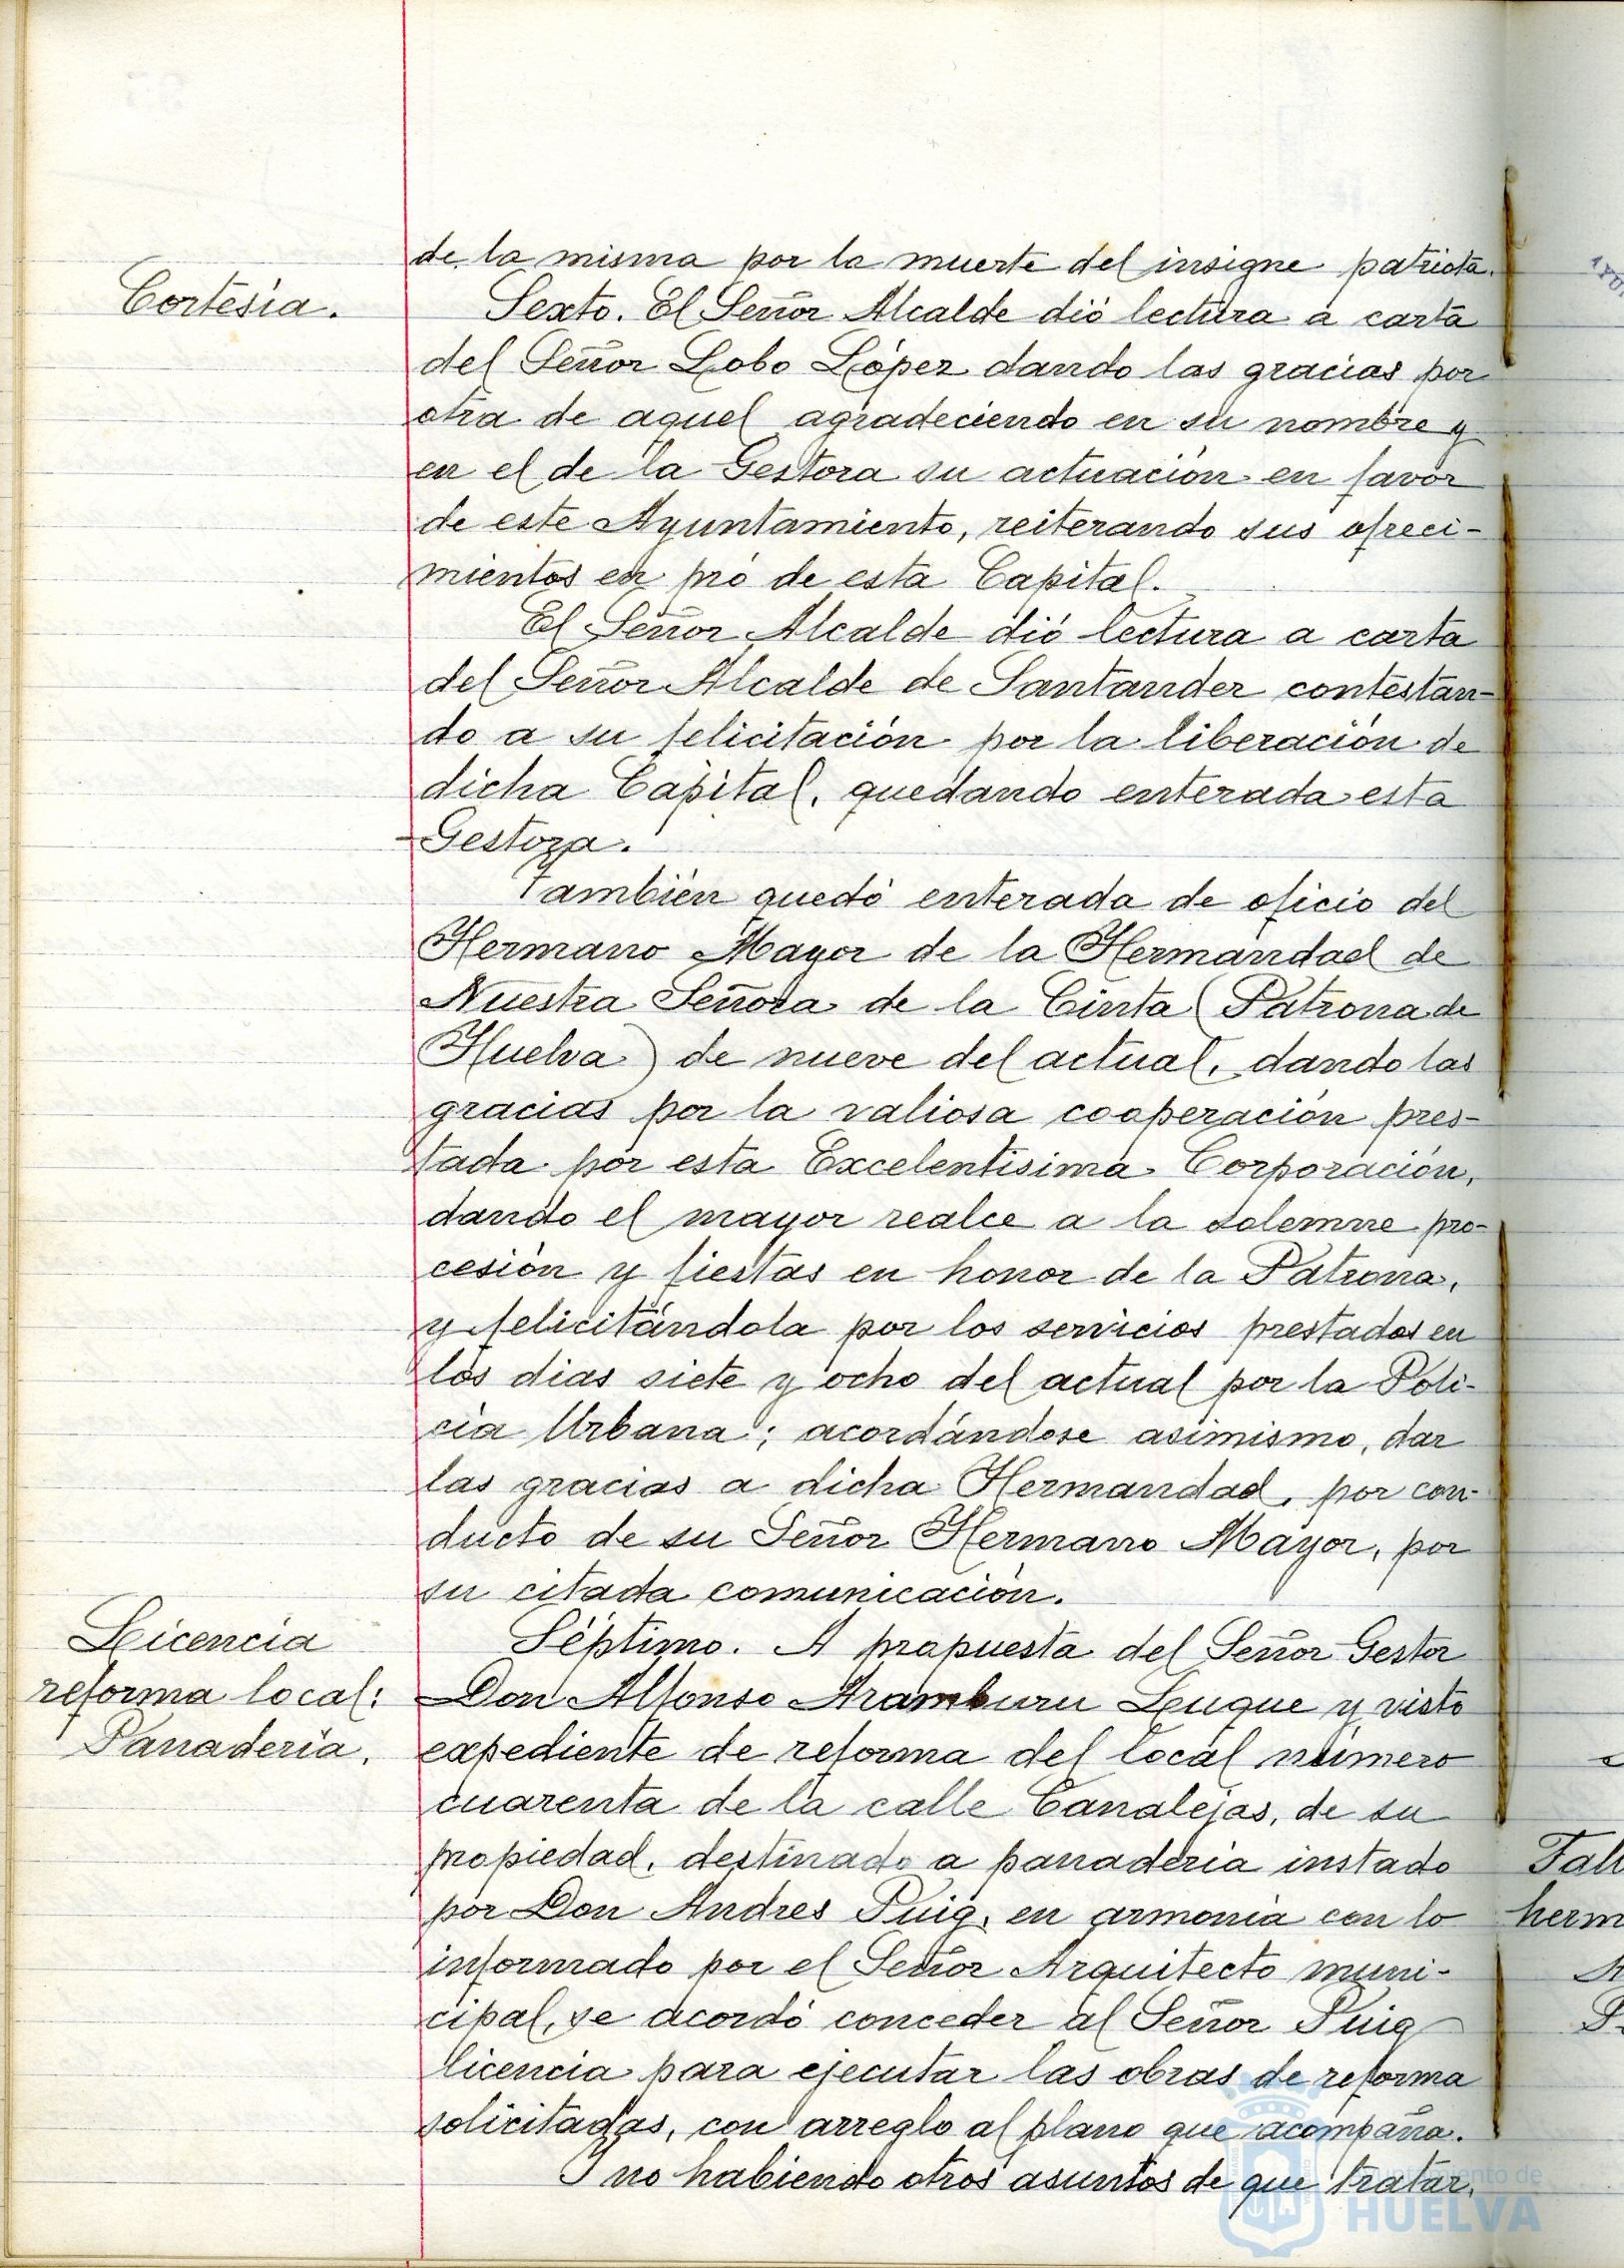 de la misma por la muerte del insigne patriota.
Cortesía.
Sexto. El Señor Alcalde dió lectura a carta
del Señor Lobo López dando las gracias por
otra de aquel agradeciendo en su nombre y
en el de la Gestora su actuación en favor
de este Ayuntamiento, reiterando sus ofreci-
mientos en pró de esta Capital.
El Señor Alcalde dió lectura a carta
del Señor Alcalde de Santander contestan-
do a su felicitación por la liberación de
dicha Capital, quedando enterada esta
Gestora.
También quedó enterada de oficio del
Hermano Mayor de la Hermandad de
Nuestra Señora de la Cinta (Patrona de
Huelva) de nueve del actual, dando las
gracias por la valiosa cooperación pres-
tada por esta Excelentísima Corporación,
dando el mayor realce a la solemne pro-
cesión y fiestas en honor de la Patrona,
y felicitándola por los servicios prestados en
los dias siete y ocho del actual por la Poli-
cía Urbana; acordándose asimismo, dar
las gracias a dicha Hermandad, por con-
ducto de su Señor Hermano Mayor, por
su citada comunicación.
Licencia
reforma local:
Panadería.
Séptimo. A propuesta del Señor Gestor
Don Alfonso Aramburu Luque y visto
expediente de reforma del local número
cuarenta de la calle Canalejas, de su
propiedad, destinado a panadería instado
por Don Andres Puig, en armonía con lo
informado por el Señor Arquitecto muni-
cipal, se acordó conceder al Señor Puig
licencia para ejecutar las obras de reforma
solicitadas, con arreglo al plano que acompaña.
Y no habiendo otros asuntos de que tratar,
Tall
herm
Ayuntamiento de
HUELVA